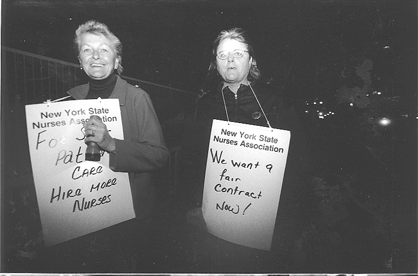 New York State
Nurses Association
Fo
Pat
CARE
HIRE MORE
NURSES
New York State
Nurses Association
We want a
fair
CONTRACT
NOW!